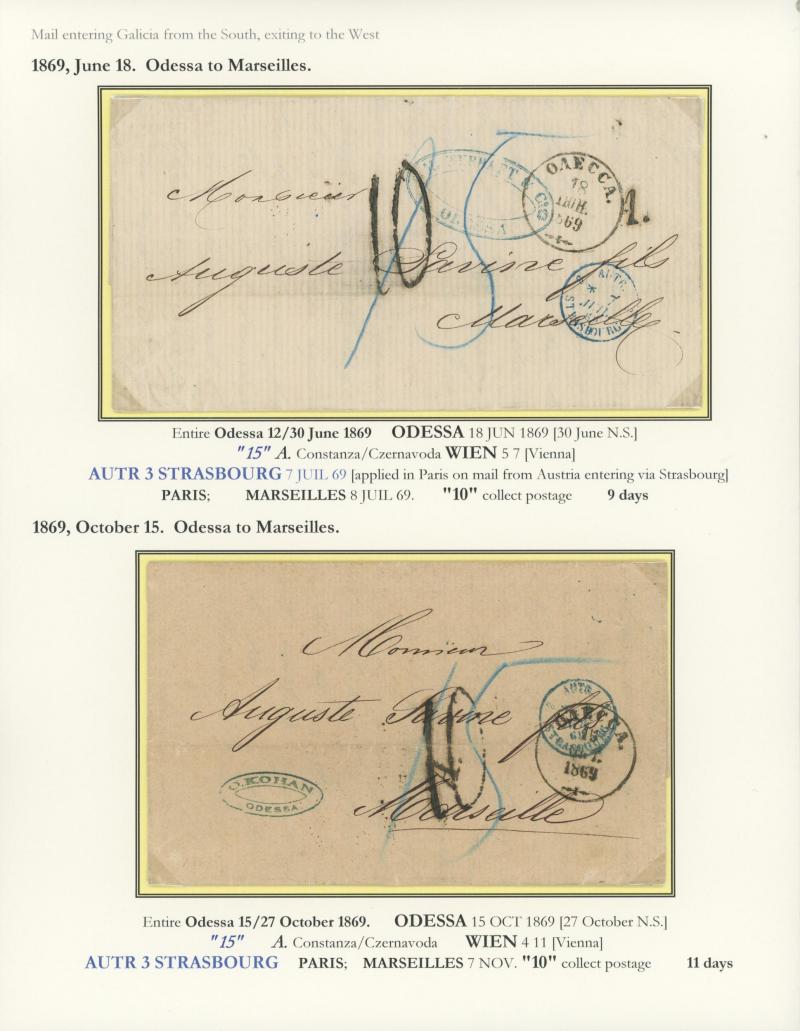 Mail entering Galicia from the South, exiting to the West
1869, June 18. Odessa to Marseilles.
& Cie
ODESSA
ОДЕССА.
18
ІЮН.
1
10
A.
15
Monsieur
Auguste fils
Marseille
AUTR.
3
STRASBOURG
Entire Odessa 12/30 June 1869 ODESSA 18 JUN 1869 [30 June N.S.]
"15" A. Constanza/Czernavoda WIEN 5 7 [Vienna]
AUTR 3 STRASBOURG 7 JUIL 69 [applied in Paris on mail from Austria entering via Strasbourg]
PARIS; MARSEILLES 8 JUIL 69. "10" collect postage 9 days
1869, October 15. Odessa to Marseilles.
Monsieur
Auguste fils
Marseille
15
10
A.
AUTR.
STRASBOURG
ОДЕССА.
1869
1
O.KOHAN
ODESSA.
Entire Odessa 15/27 October 1869. ODESSA 15 OCT 1869 [27 October N.S.]
"15" A. Constanza/Czernavoda WIEN 4 11 [Vienna]
AUTR 3 STRASBOURG PARIS; MARSEILLES 7 NOV. "10" collect postage 11 days